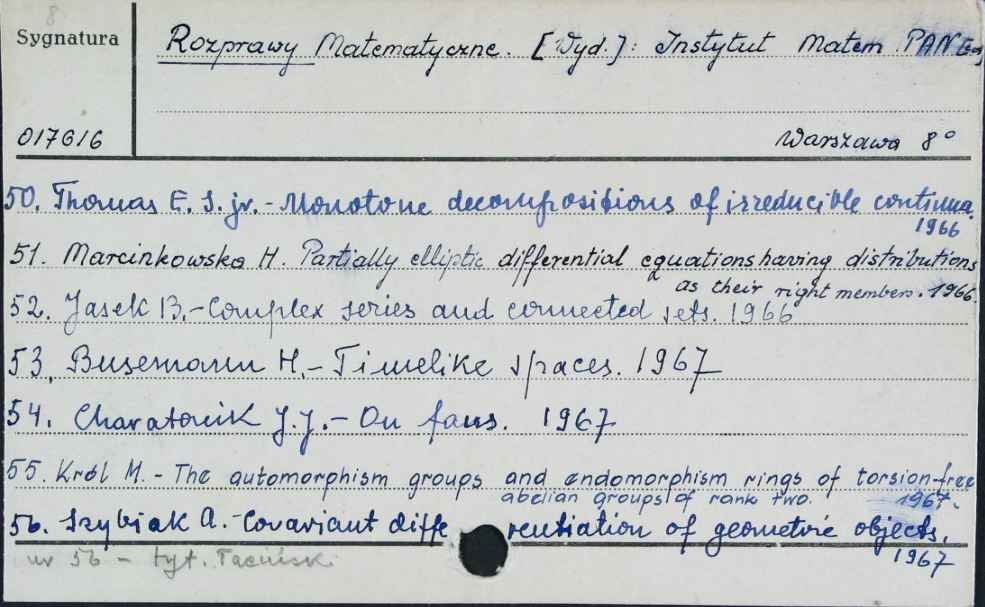 8
Sygnatura
Rozprawy Matematyczne. [Wyd.]: Instytut Matem PAN
017616
Warszawa 8°
50. Thomas E. S. jr. - Monotone decompositions of irreducible continua.
1966
51. Marcinkowska H. Partially elliptic differential equations having distributions
as their right members. 1966.
52. Jasek B. - Complex series and connected sets. 1966
53. Busemann H. - Timelike spaces. 1967
54. Charatonik J.J. - On fans. 1967
55. Król M. - The automorphism groups and endomorphism rings of torsion-free
abelian groups of rank two. 1967.
56. Szybiak A. - Covariant differentiation of geometric objects.
1967
nr 56 - tyt.